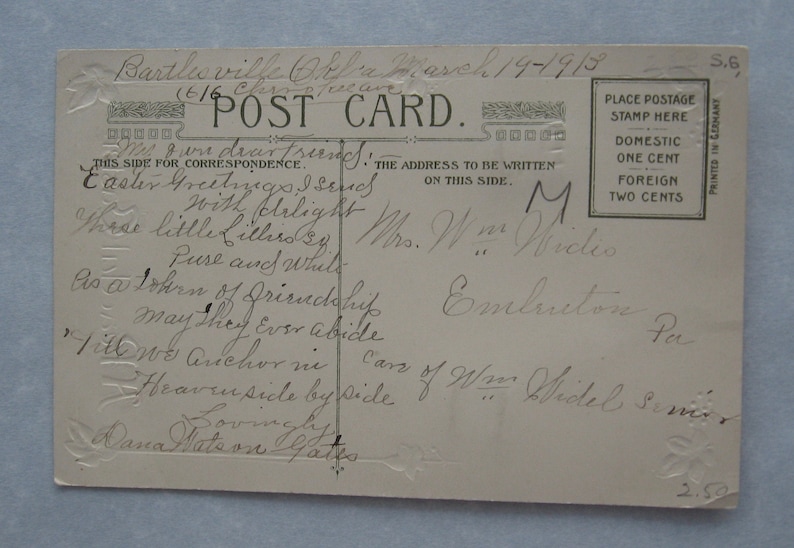 Bartlesville Okla March 19-1913
S.6,
(616 Ave
POST CARD.
PLACE POSTAGE
STAMP HERE
DOMESTIC
ONE CENT
FOREIGN
TWO CENTS
PRINTED IN GERMANY
My own dear Friend,
THIS SIDE FOR CORRESPONDENCE.
Easter Greetings, I send
With delight
These little Lillies so
Pure and White
As a Token of friendship
May They Ever abide
'Till we anchor in
Heaven side by side
Lovingly
Dana Watson Gates
THE ADDRESS TO BE WRITTEN
ON THIS SIDE.
M
Mrs. Wm Widis
Emlenton
Pa
Care of Wm Widel Senior
2.50